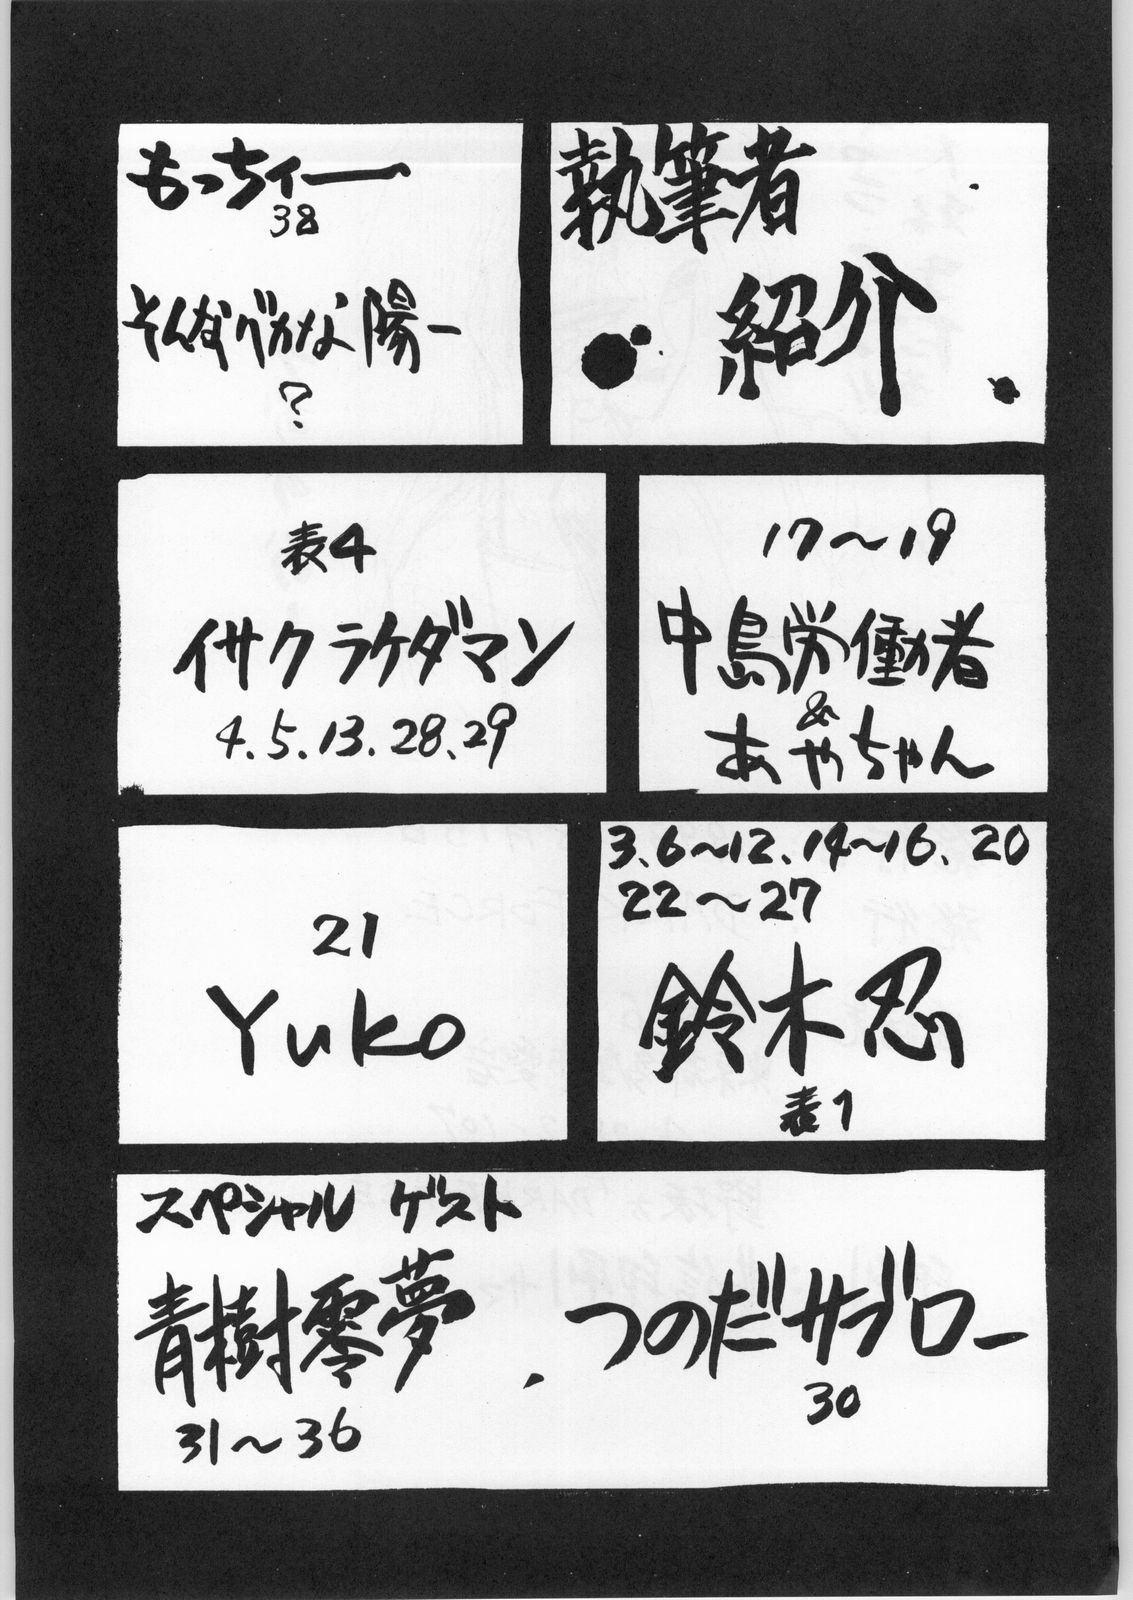 執筆者
紹介
もっちィー
38
そんなバカな 陽一
?
17〜19
中島労働者
&
あやちゃん
表4
イサクラケダマン
4.5.13.28.29
3.6〜12.14〜16.20
22〜27
鈴木忍
表1
21
Yuko
スペシャル ゲスト
青樹零夢
31〜36
つのだサブロー
30